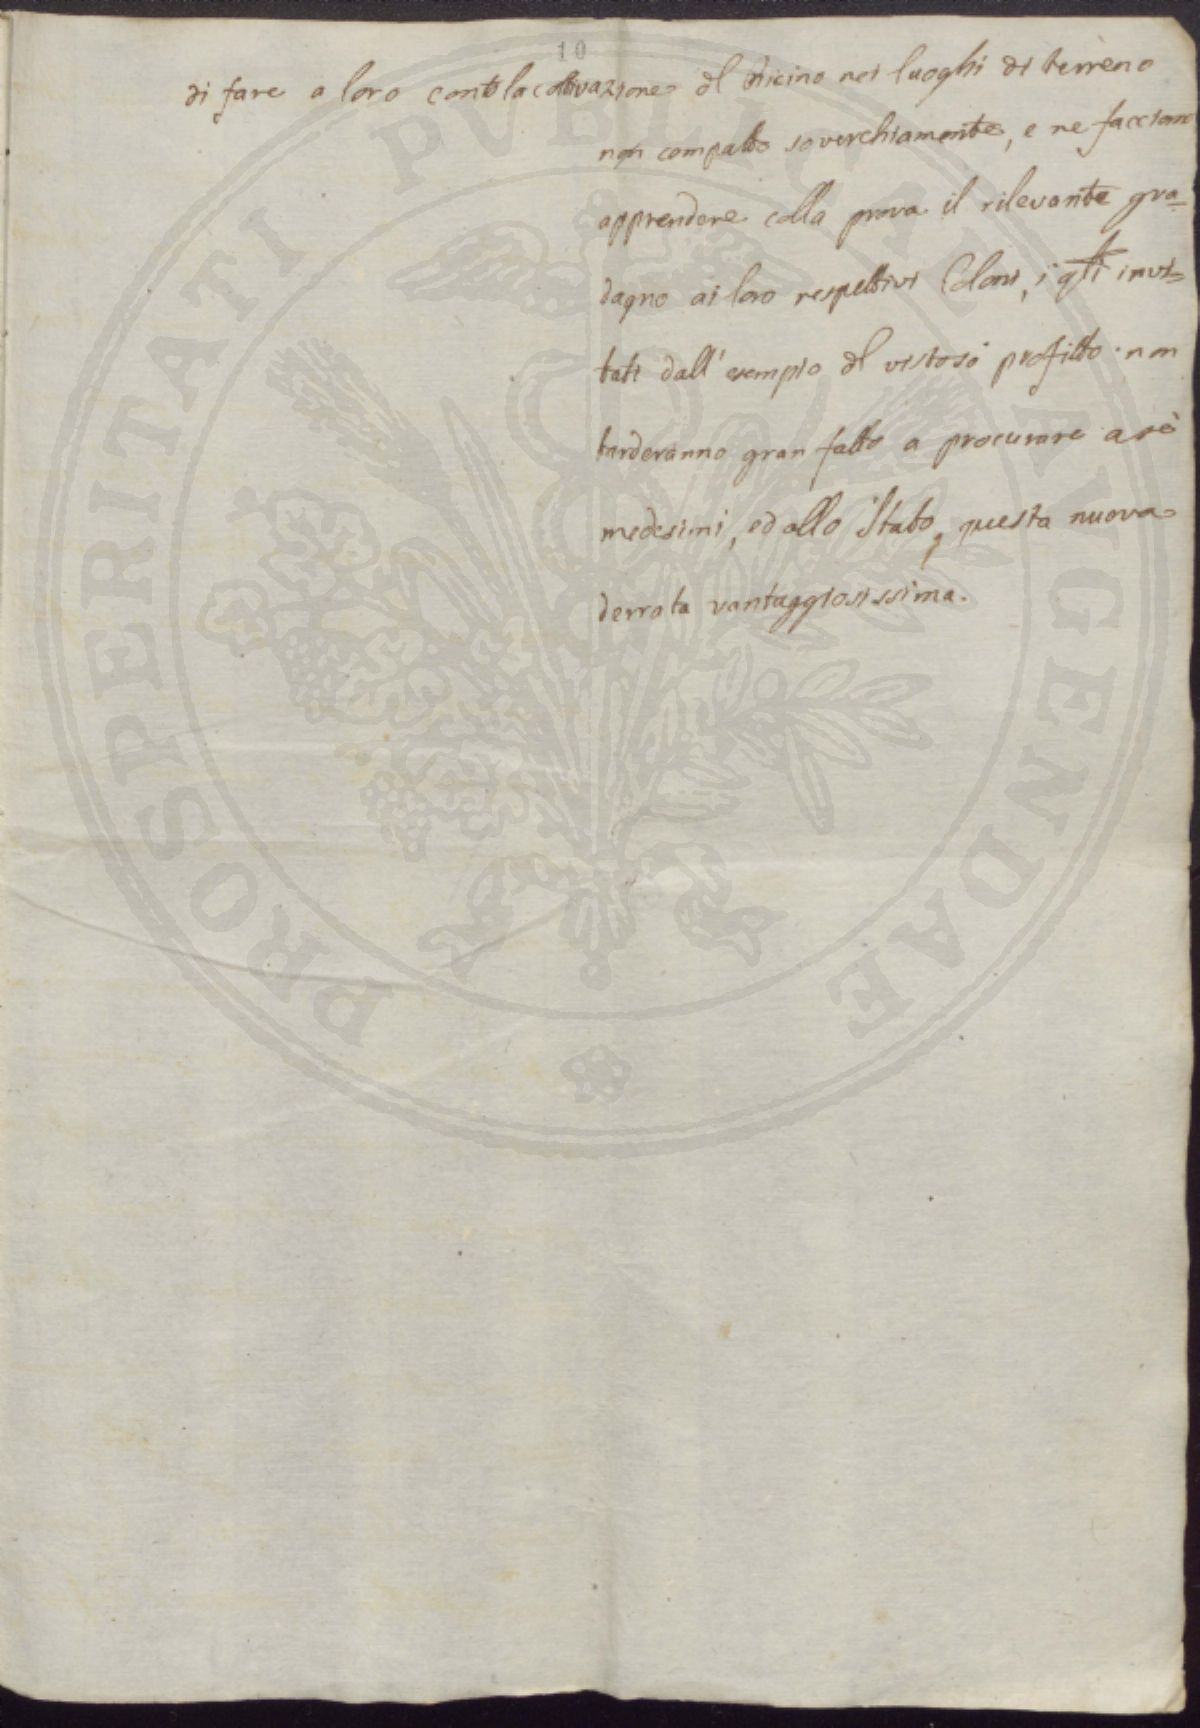 10
di fare a loro conto la coltivazione del Ricino nei luoghi di terreno
non compatto soverchiamente, e ne facciano
apprendere colla prova il rilevante gua-
dagno ai loro respettivi Coloni, i qli invi-
tati dall'esempio del vistoso profitto non
tarderanno gran fatto a procurare a sè
medesimi, ed allo Stato, questa nuova
derrata vantaggiosissima.
PROSPERITATI PVBLICAE AVGENDAE